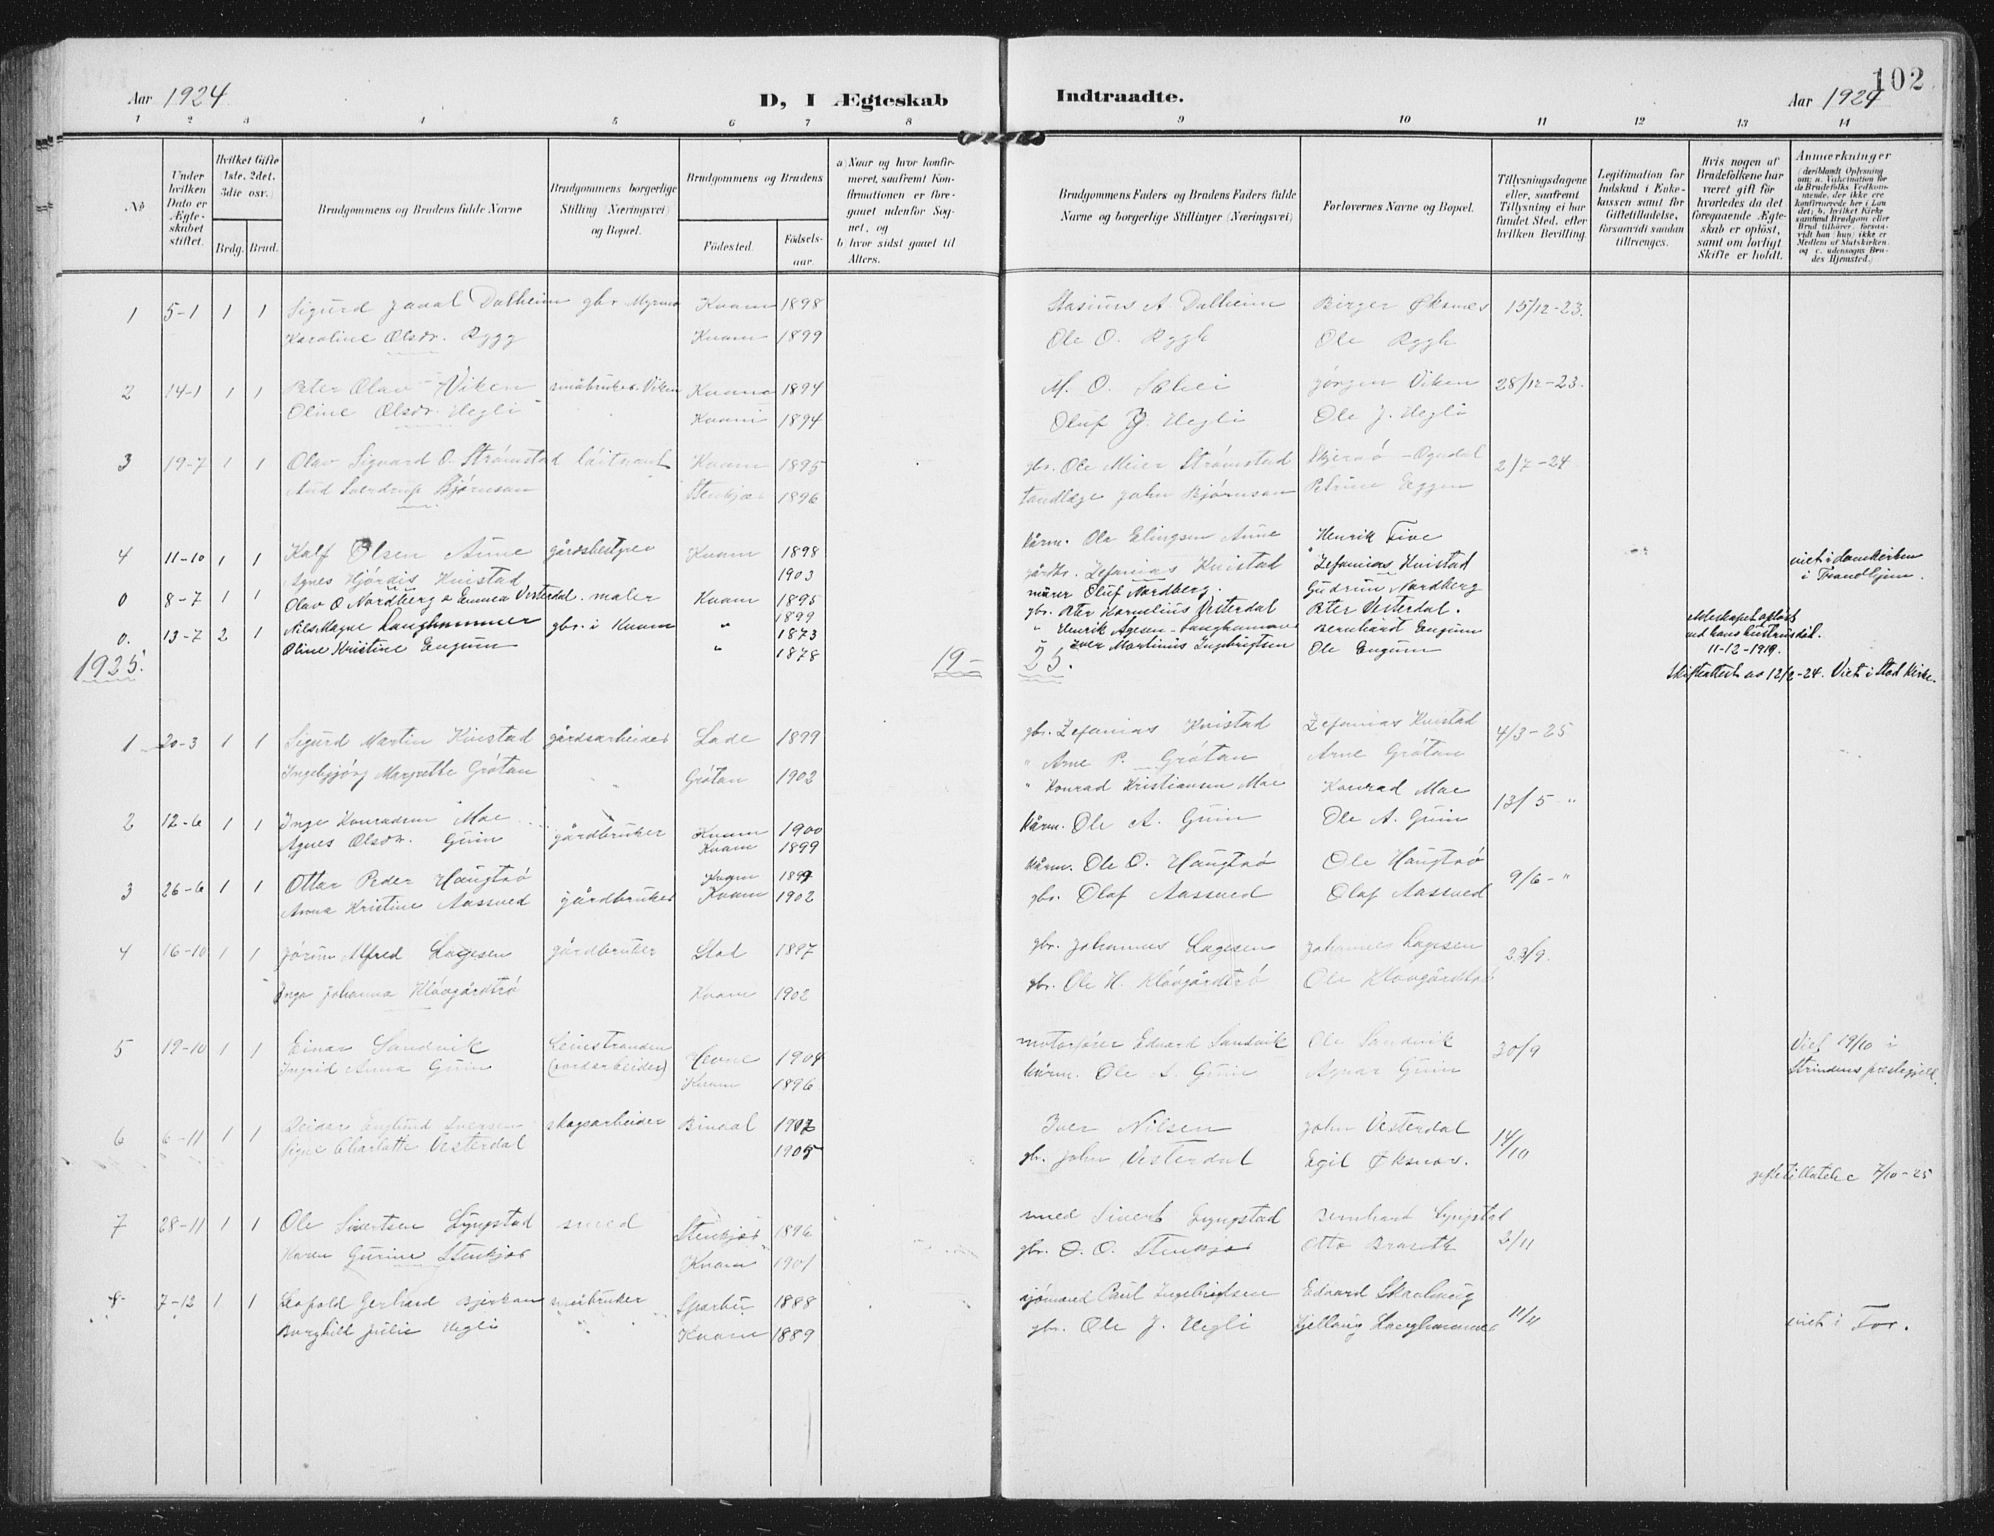 102
Aar 1924. D, I Ægteskab Indtraadte. Aar 1924
1 2 3 4 5 6 7 8 9 10 11 12 13 14
№
Under hvilken Dato er Ægteskabet stiftet.
Hvilket Gifte (1ste, 2det, 3die osv.)
Brdg. Brud.
Brudgommens og Brudens fulde Navne
Brudgommens borgerlige Stilling (Næringsvei) og Bopæl.
Brudgommens og Brudens
Fødested. Fødselsaar.
a) Naar og hvor konfirmeret, saafremt Konfirmationen er foregaaet udenfor Sognet, og
b hvor sidst gaaet til Alters.
Brudgommens Faders og Brudens Faders fulde Navne og borgerlige Stillinger (Næringsvei)
Forlovernes Navne og Bopæl.
Tillysningsdagene eller, saafremt Tillysning ei har fundet Sted, efter hvilken Bevilling.
Legitimation for Indskud i Enkekassen samt for Giftetilladelse, forsaavidt saadan tiltrænges.
Hvis nogen af Brudefolkene har været gift før hvorledes da det foregaaende Ægteskab er opløst, samt om lovligt Skifte er holdt.
Anmærkninger (deriblandt Oplysning om: a. Vakcination for de Brudefolks Vedkommende, der ikke ere konfirmerede her i Landet; b. hvilket Kirkesamfund Brudgom eller Brud tilhører, forsaavidt han (hun) ikke er Medlem af Statskirken, og c. udensogns Brudes Hjemsted.)
1 5-1 1 1 Sigurd Dalheim gbr. Kvam 1898 A. Dalheim Birger Øksnes 15/12-23.
Karoline Olsdr. Rygg Kvam 1899 Ole O. Rygh Ole Rygh
2 14-1 1 1 Peter Olav Viken småbruker Viken Kvam 1894 M. O. Jørgen Viken 28/12-23.
Oline Olsdr. Hegli Kvam 1894 Oluf J. Hegli Ole J. Hegli
3 19-7 1 1 Olav Sigvard O. Strømstad løitnant Kvam 1895 gbr. Ole Meier Strømstad 2/7-24
Aud Sverdrup Bjørnsan Stenkjær 1896 tandlæge John Bjørnsan Petrine Eggen
4 11-10 1 1 Kalf Olsen Aune gårdsbestyrer Kvam 1898 kårm. Ole Elingsen Aune Henrik Five viet i domkirken
Agnes Hjørdis Kvistad 1903 gårdbr. Zefanias Kvistad Zefanias Kvistad i Trondhjem.
0 8-7 1 1 Olav O Nordberg & Emma Vesterdal. maler Kvam 1895 murer Oluf Nordberg. Gudrun Nordberg
1899 gbr. Peter Kornelius Vesterdal Peter Vesterdal.
0. 13-7 2 1 Nils Magne Langhammer gbr. i Kvam " 1873 " Henrik Agesen Langhammer Bernhardt Engum ekteskapet opløst ved hans hustrus død. 11-12-1919.
Oline Kristine Engum " 1878 Iver Martinus Ingebrigtsen Ole Engum
Skifteattest av 12/2-24. Viet i Stod Kirke.
1925. 19- 25.
1 20-3 1 1 Sigurd Martin Kvistad gårdsarbeider Lade 1899 gbr. Zefanias Kvistad Zefanias Kvistad 4/3-25
Ingebjørg Margrethe Grøtan Grøtan 1902 " Arne P. Grøtan Arne Grøtan
2 12-6 1 1 Inge Konradsen Moe gårdbruker Kvam 1900 " Konrad Kristiansen Moe Konrad Moe 13/5 "
Agnes Olsdr. Guin Kvam 1899 kårm. Ole A. Guin Ole A. Guin
3 26-6 1 1 Ottar Peder Haugtrø gårdbruker Kvam 1899 kårm. Ole O. Haugtrø Ole Haugtrø 9/6-"
Anna Kristine Aassved Kvam 1902 gbr. Olaf Aassved Olaf Aassved
4 16-10 1 1 Jørum Alfred Lagesen gårdbruker Stod 1897 gbr. Johannes Lagesen Johannes Lagesen 23/9.
Inga Johanna Kløvgårdtrø Kvam 1902 gbr. Ole H. Kløvgårdtrø Ole Kløvgårdtrø
5 19-10 1 1 Einar Sandvik Leinstranden Hevne 1904 motorfører Edvard Sandvik Ole Sandvik 30/9 Viet 19/10 i
Ingrid Anna Guin (jordarbeider) Kvam 1896 kårm. Ole A. Guin Agnar Guin Strindens prestegjeld.
6 6-11 1 1 Reidar Englund Iversen skogsarbeider Bindal 1907 Iver Nilsen John Vesterdal 14/10
Signe Charlotte Vesterdal 1905 gbr. John Vesterdal Egil Øksnes.
giftetillatelse 7/10-25
7 28-11 1 1 Ole Sivertsen Lyngstad smed Stenkjær 1896 smed Sivert Lyngstad Bernhard Lyngstad 2/11
Karen Gurine Stenkjær Kvam 1901 gbr. O. O. Stenkjær Otto
8 7-12 1 1 Leopold Gerhard Bjerkan småbruker Sparbu 1888 sjømand Paul Ingebrigtsen Edvard 11/11
Borghild Julie Hegli " " Kvam 1889 gbr. Ole J. Hegli Kjellaug Langhammer viet i For.